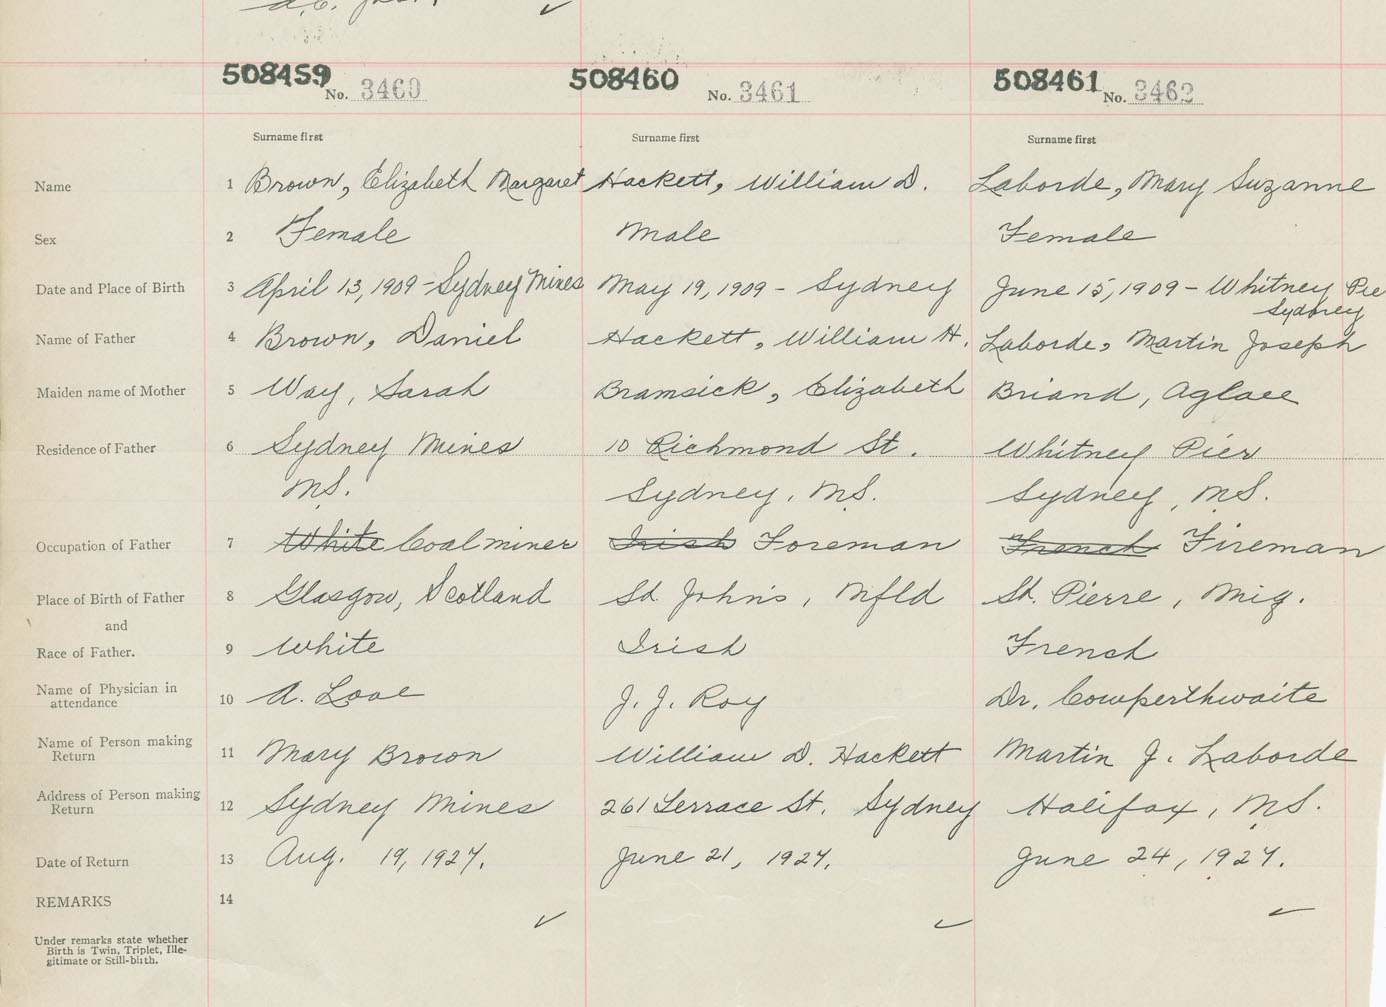 508459 No. 3460 508460 No. 3461 508461 No. 3462
Surname first Surname first Surname first
Name 1 Brown, Elizabeth Margaret Hackett, William D. Laborde, Mary Suzanne
Sex 2 Female Male Female
Date and Place of Birth 3 April 13, 1909 - Sydney Mines May 19, 1909 - Sydney June 15, 1909 - Whitney Pie
Sydney
Name of Father 4 Brown, Daniel Hackett, William H. Laborde, Martin Joseph
Maiden name of Mother 5 Way, Sarah Bramsick, Elizabeth Briand, Aglaee
Residence of Father 6 Sydney Mines 10 Richmond St. Whitney Pier
N.S. Sydney, N.S. Sydney, N.S.
Occupation of Father 7 White Coalminer Irish Foreman French Fireman
Place of Birth of Father 8 Glasgow, Scotland St. John's, Nfld St. Pierre, Miq.
and
Race of Father. 9 White Irish French
Name of Physician in
attendance 10 A. Love J. J. Roy Dr. Cowperthwaite
Name of Person making
Return 11 Mary Brown William D. Hackett Martin J. Laborde
Address of Person making
Return 12 Sydney Mines 261 Terrace St. Sydney Halifax, N.S.
Date of Return 13 Aug. 19, 1927. June 21, 1927. June 24, 1927.
REMARKS 14
Under remarks state whether
Birth is Twin, Triplet, Ille-
gitimate or Still-birth.